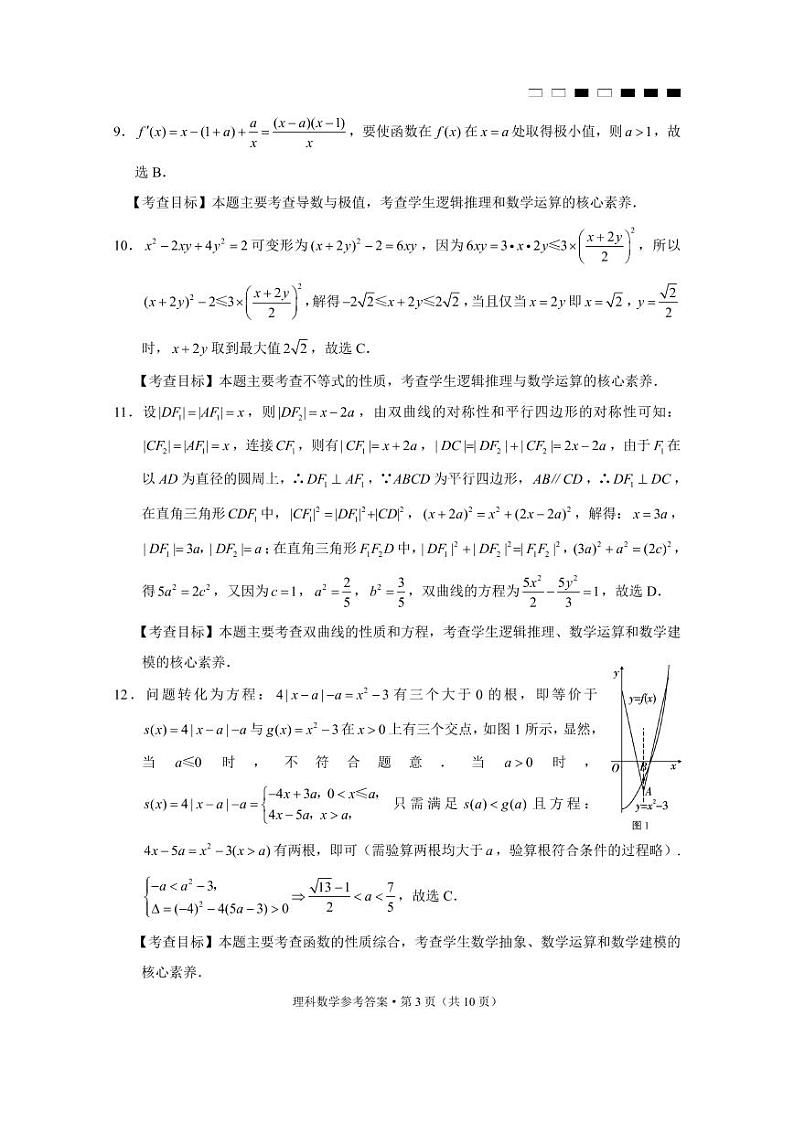 9．f′(x)=x−(1+a)+a/x=(x−a)(x−1)/x，要使函数在 f(x) 在 x=a 处取得极小值，则 a>1，故
选 B．
【考查目标】本题主要考查导数与极值，考查学生逻辑推理和数学运算的核心素养．
10．x²−2xy+4y²=2 可变形为 (x+2y)²−2=6xy，因为 6xy=3•x•2y≤3×((x+2y)/2)²，所以
(x+2y)²−2≤3×((x+2y)/2)²，解得 −2√2≤x+2y≤2√2，当且仅当 x=2y 即 x=√2，y=√2/2
时，x+2y 取到最大值 2√2，故选 C．
【考查目标】本题主要考查不等式的性质，考查学生逻辑推理与数学运算的核心素养．
11．设|DF₁|=|AF₁|=x，则|DF₂|=x−2a，由双曲线的对称性和平行四边形的对称性可知：
|CF₂|=|AF₁|=x，连接CF₁，则有|CF₁|=x+2a，|DC|=|DF₂|+|CF₂|=2x−2a，由于F₁在
以AD为直径的圆周上，∴DF₁⊥AF₁，∵ABCD为平行四边形，AB∥CD，∴DF₁⊥DC，
在直角三角形CDF₁中，|CF₁|²=|DF₁|²+|CD|²，(x+2a)²=x²+(2x−2a)²，解得：x=3a，
|DF₁|=3a，|DF₂|=a；在直角三角形F₁F₂D中，|DF₁|²+|DF₂|²=|F₁F₂|²，(3a)²+a²=(2c)²，
得5a²=2c²，又因为c=1，a²=2/5，b²=3/5，双曲线的方程为5x²/2−5y²/3=1，故选 D．
【考查目标】本题主要考查双曲线的性质和方程，考查学生逻辑推理、数学运算和数学建
模的核心素养．
12．问题转化为方程：4|x−a|−a=x²−3有三个大于0的根，即等价于
s(x)=4|x−a|−a与g(x)=x²−3在x>0上有三个交点，如图1所示，显然，
当a≤0时，不符合题意．当a>0时，
s(x)=4|x−a|−a={−4x+3a，0<x≤a，4x−5a，x>a， 只需满足s(a)<g(a)且方程：
4x−5a=x²−3(x>a)有两根，即可（需验算两根均大于a，验算根符合条件的过程略）．
{−a<a²−3，Δ=(−4)²−4(5a−3)>0 ⇒(√13−1)/2<a<7/5，故选 C．
y
y=f(x)
O
B
x
A
y=x²−3
图1
【考查目标】本题主要考查函数的性质综合，考查学生数学抽象、数学运算和数学建模的
核心素养．
理科数学参考答案·第3页（共10页）